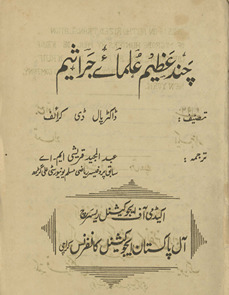 چند عظیم علمائے جراثیم
تصنیف: ڈاکٹر پال ڈی کرائف
ترجمہ: عبدالمجید قریشی ایم۔ اے
سابق پروفیسر ریاضی مسلم یونیورسٹی علی گڑھ
اکیڈمی آف ایجوکیشنل ریسرچ
آل پاکستان ایجوکیشنل کانفرنس کراچی